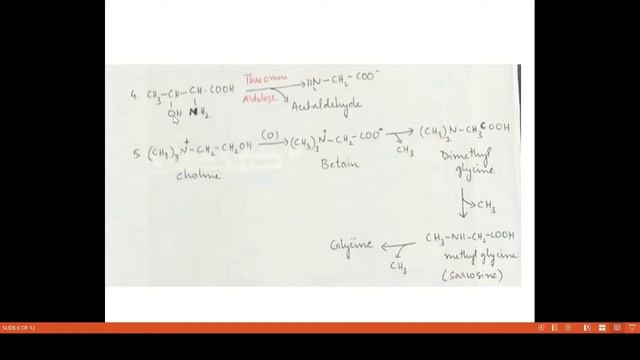 4. CH3-CH-CH-COOH Threonine Aldolase H2N-CH2-COO-
OH NH2 Acetaldehyde
5. (CH3)3N+-CH2-CH2OH (O) (CH3)3N+-CH2-COO- (CH3)2N-CH3COOH
CH3
Choline Betain Dimethyl
glycine
CH3
Glycine CH3-NH-CH2-COOH
CH3 methyl glycine
(Sarcosine)
SLIDE 6 OF 12